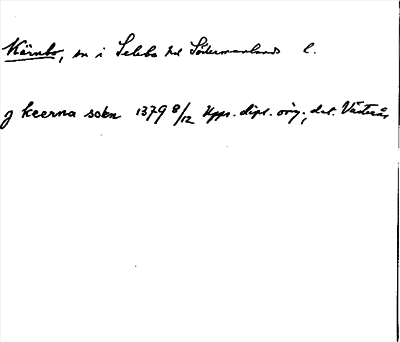 Kärnbo, sn i Selebo hd Södermanlands l.
J keerna sokn 1379 8/12 Upps. dipl. orig., dat. Västerås